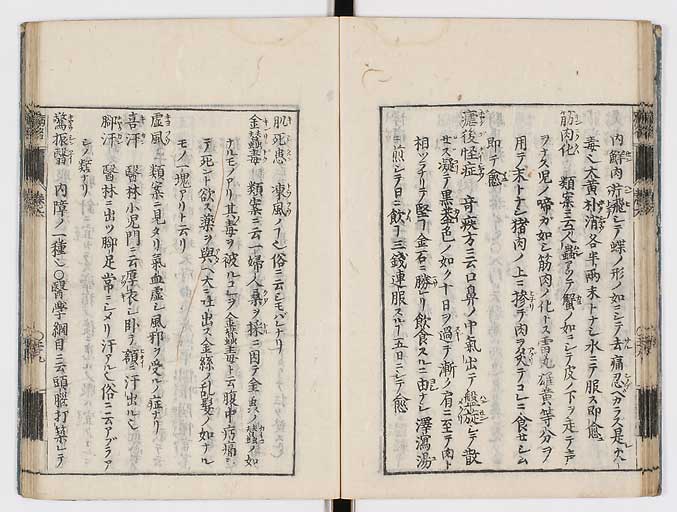 内鮮肉 飛シテ蝶ノ形ノ如ニシテ去痛忍ヘカラス是火
毒也大黄朴消各半両末トナシ水ニテ服ス即愈
筋肉化 類案ニ云フ蟲アツテ蟹ノ如ニシテ皮ノ下ヲ走テ声
ヲナス児ノ啼カ如シ筋肉ノ化トス雷丸雄黄等分ヲ
用テ末トナシ猪肉ノ上ニ摻テ肉ヲ炙テコレニ食セシム
即チ愈
瘧後怪症 奇疾方云口鼻ノ中氣出テ盤旋シテ散
セス凝テ黒蓋色ノ如ク十日ヲ過テ漸ノ肩ニ至テ肉ト
相ツラナリテ堅ヿ金石ニ勝レリ飲食スルニ由ナシ澤瀉湯
ヲ煎シテ日ニ飲ヿ三錢連服スルヿ五日ニシテ愈
肌死患 凍風ヲイフ也俗ニ云シモバレナリ
金蠶毒 類案ニ云一婦人桑ヲ採ニ因テ金蟲ノ蠶ノ如
ナルモノアリ其毒ヲ被ルコレヲ金蠶毒ト云腹中㽲痛シ
テ死ント欲ス薬ヲ與ヘ大ニ吐出ス金絲ノ乱髪ノ如ナル
モノ一塊アリト云リ
虚風 類案ニ見タリ氣血虚シ風邪ヲ受ルノ症ナリ
喜汗 醫林小児門ニ云厚衣シ卧テ額ニ汗出ル也
脚汗 醫林ニ出ツ脚足常ニシメリ汗アル也俗ニ云アブラア
シノ類ナリ
驚振翳 内障ノ一種也○醫學綱目ニ云頭腦打築シテ